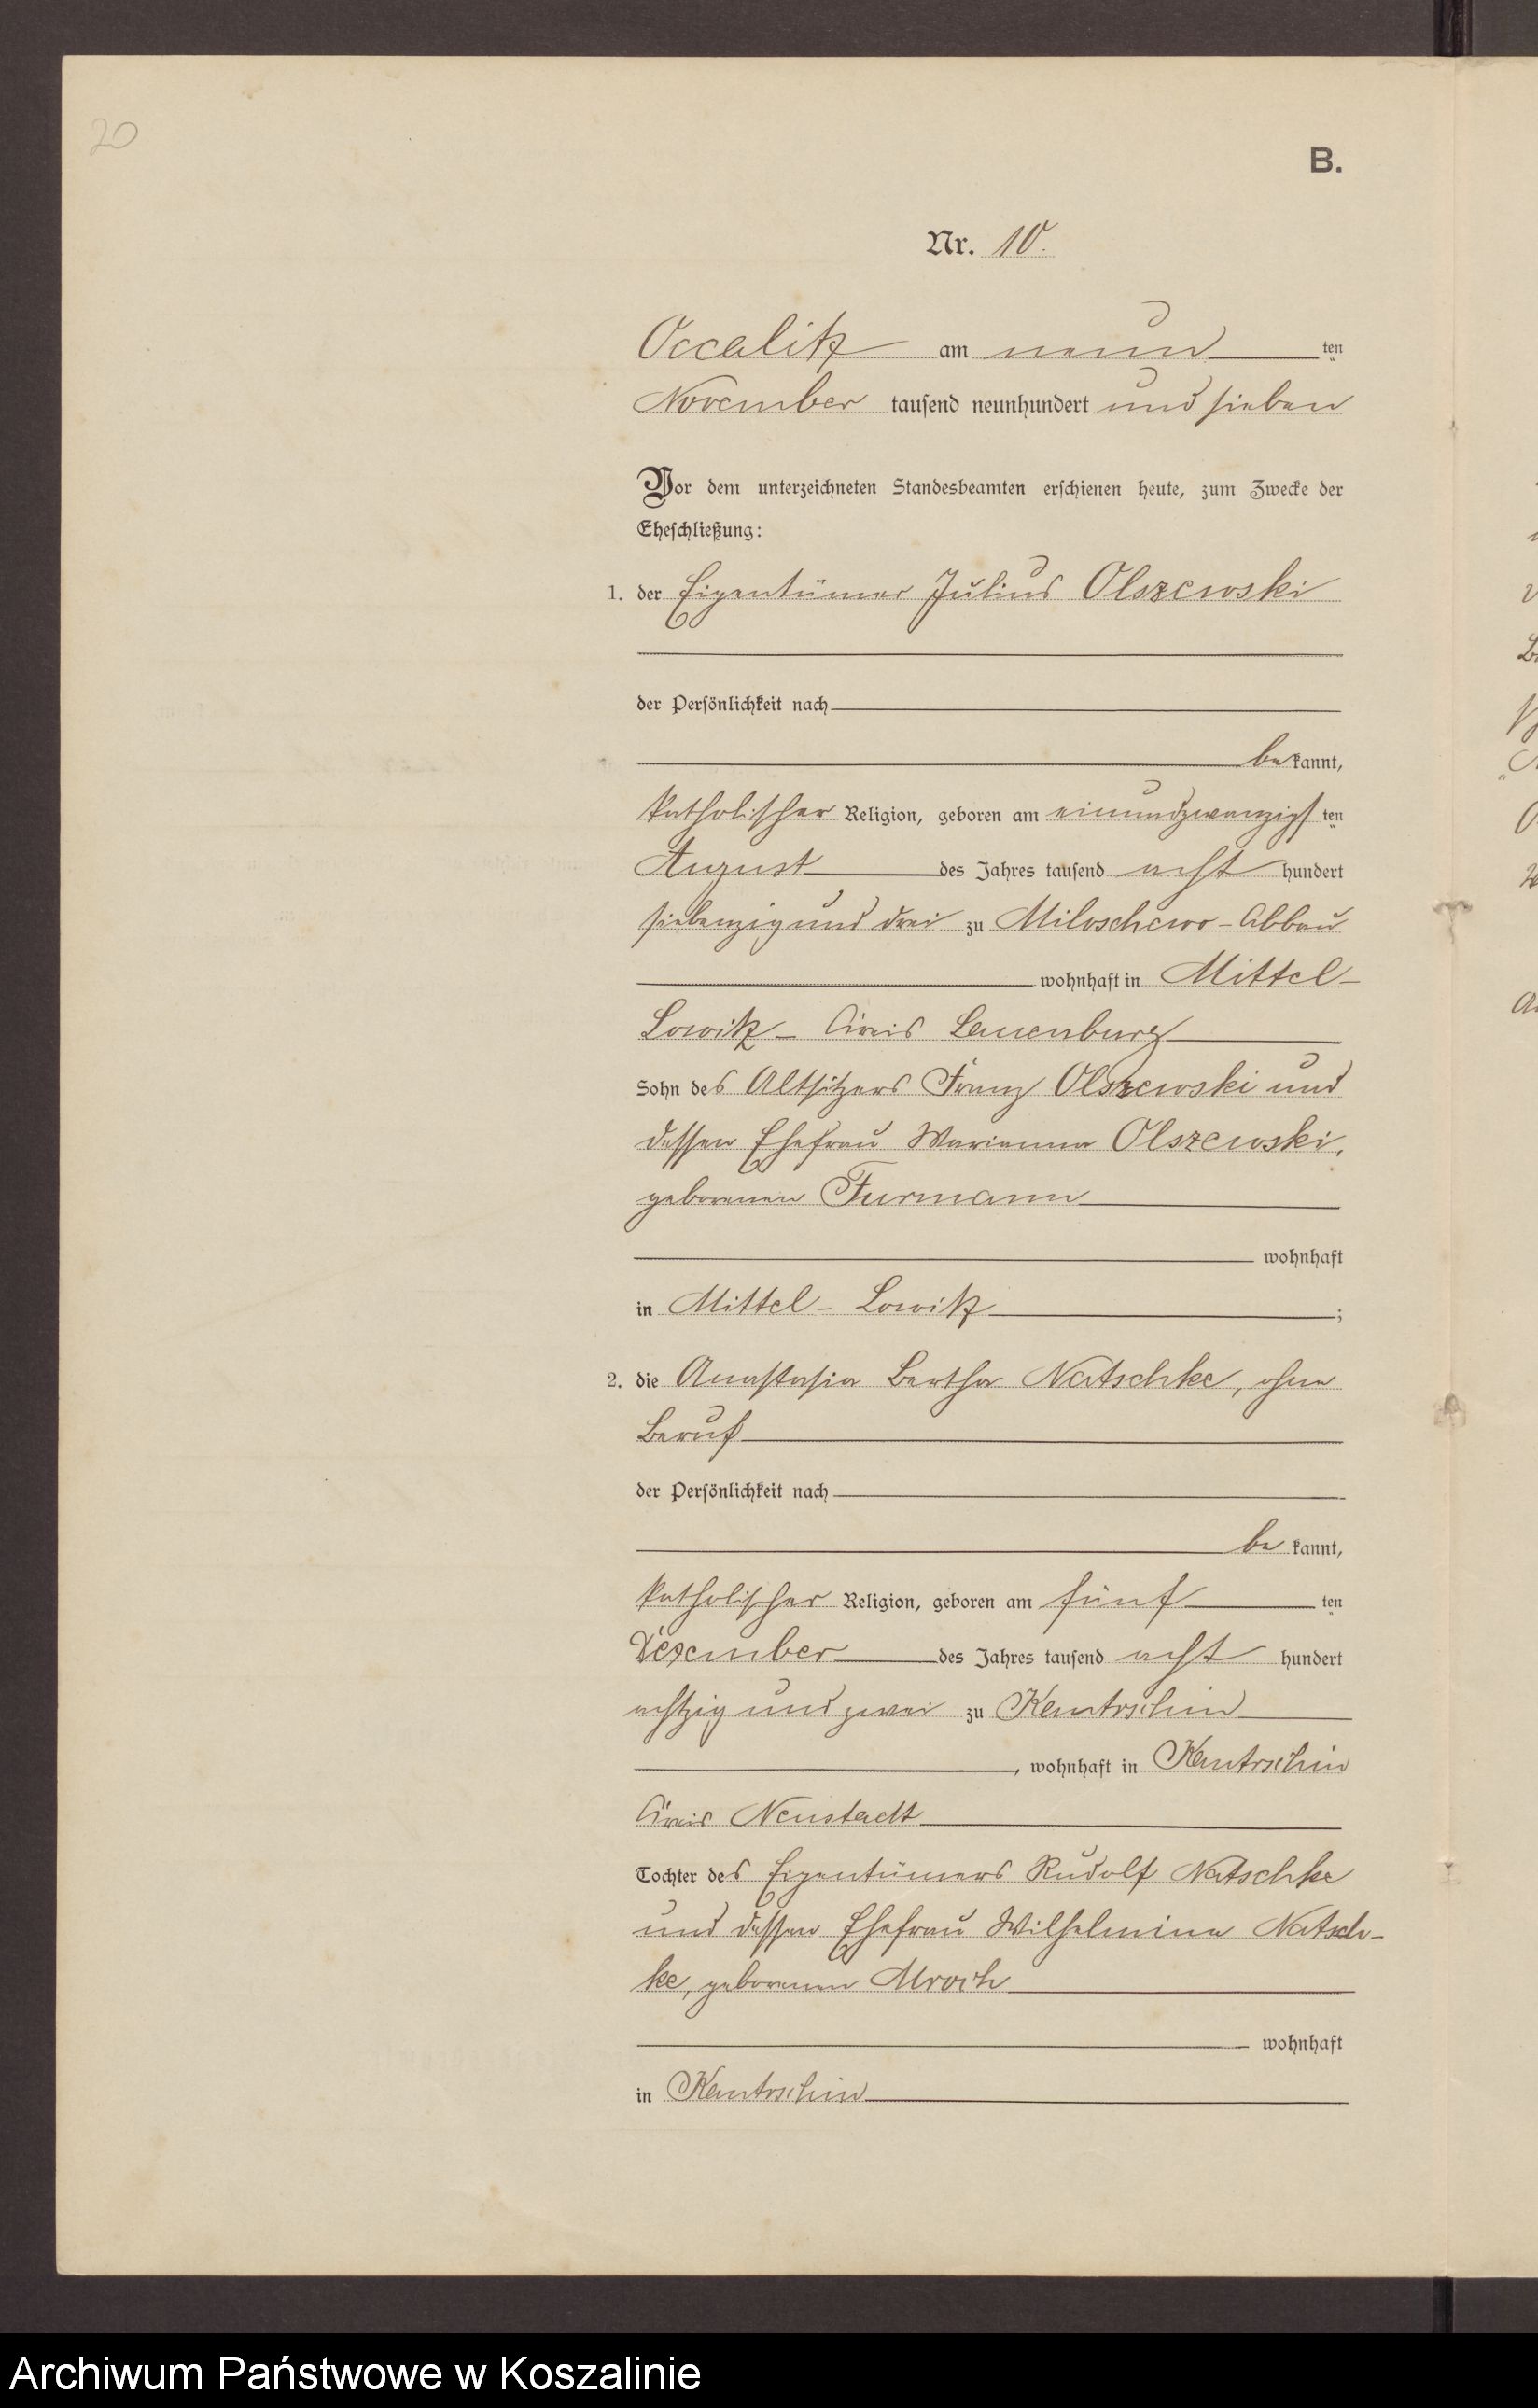 20
B.
Nr. 10.
Occalitz am neun ten
November tausend neunhundert und sieben
Vor dem unterzeichneten Standesbeamten erschienen heute, zum Zwecke der
Eheschließung:
1. der Eigentümer Julius Olszewski
der Persönlichkeit nach
be kannt,
katholischer Religion, geboren am einundzwanzigs ten
August des Jahres tausend acht hundert
siebenzig und drei zu Miloschewo-Abbau
wohnhaft in Mittel-
Lowitz - Kreis Lauenburg
Sohn des Altsitzers Franz Olszewski und
dessen Ehefrau Marianna Olszewski,
geborenen Furmann
wohnhaft
in Mittel-Lowitz ;
2. die Anastasia Bertha Natschke, ohne
Beruf
der Persönlichkeit nach
be kannt,
katholischer Religion, geboren am fünf ten
Dezember des Jahres tausend acht hundert
achtzig und zwei zu Kantrschin
, wohnhaft in Kantrschin
Kreis Neustadt
Tochter des Eigentümers Rudolf Natschke
und dessen Ehefrau Wilhelmina Natsch-
ke, geborenen Mroch
wohnhaft
in Kantrschin
Archiwum Państwowe w Koszalinie